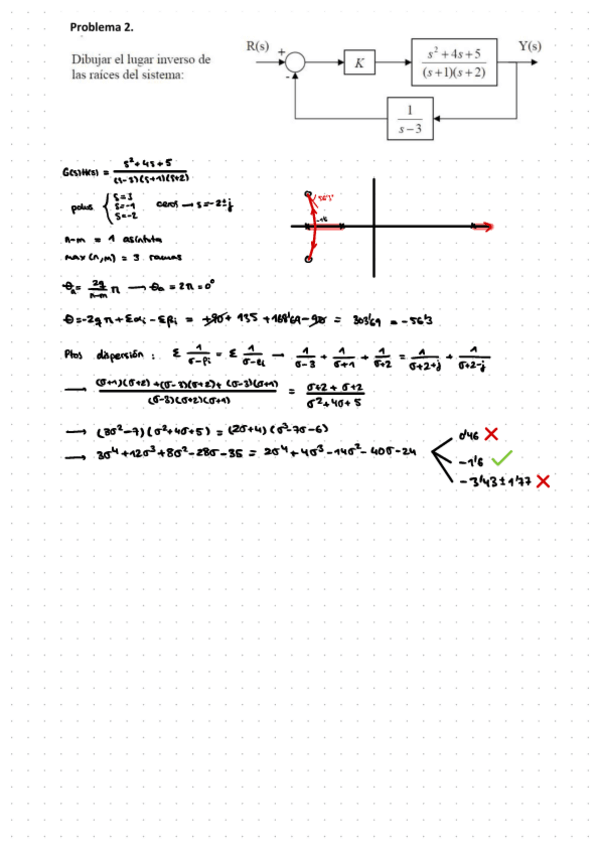 Problema 2.
Dibujar el lugar inverso de
las raíces del sistema:
R(s) + - K s² + 4s + 5 / (s+1)(s+2) Y(s)
1 / s − 3
G(s)H(s) = s² + 4s + 5 / (s-3)(s+1)(s+2)
polos { s=3 s=-1 s=-2 ceros → s=-2±j
n-m = 1 asíntota
max(n,m) = 3 ramas
θa = 2q/n-m π → θa = 2π = 0°
56'3°
-1'6
θ = -2qπ + Σαi - Σβi = +90 + 135 + 168'69 - 90 = 303'69 = -56'3
Ptos dispersión : Σ 1/σ-pi = Σ 1/σ-ci → 1/σ-3 + 1/σ+1 + 1/σ+2 = 1/σ+2+j + 1/σ+2-j
→ (σ+1)(σ+2) + (σ-3)(σ+2) + (σ-3)(σ+1) / (σ-3)(σ+2)(σ+1) = σ+2 + σ+2 / σ²+4σ+5
→ (3σ²-7)(σ²+4σ+5) = (2σ+4)(σ³-7σ-6)
→ 3σ⁴+12σ³+8σ²-28σ-35 = 2σ⁴+4σ³-14σ²-40σ-24
0'46 ✗
-1'6 ✓
-3'43±1'77 ✗